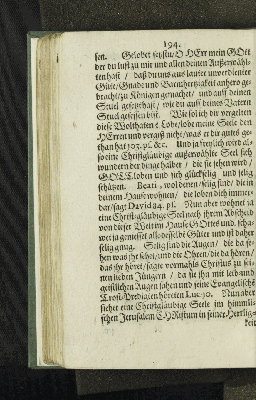 194.
sen. Gelobet seystu/O HErr mein GOtt
der du lust zu mir und allen deinen Außerwähl-
ten hast / daß du uns aus lauter unverdienter
Güte/Gnad und Barmhertzigkeit anhero ge-
bracht/zu Königen gemachet/ und auff deinen
Stuel gesetzt hast/ wie du auff deines Vatern
Stuel gesessen bist. Wie sol ich dir vergelten
diese Wolthaten? Lobe/lobe meine Seele den
HErren und vergiß nicht/was er dir gutes ge-
than hat 103. pl. &c. Und ja freylich wird al-
so eine Christgläubige außerwählte Seel sich
wundern der dinge halber / die sie sehen wird/
GOtt loben und sich glückselig und selig
schätzen. Beati, wol denen/selig sind/ die in
deinem Hause wohnen/ die loben dich immer-
dar/sagt David 84. pl. Nun aber wohnet ja
eine Christgläubige Seel nach ihrem Abscheid
von dieser Welt im Hause Gottes und schaw-
et ja geniesset alldo selbst Güter und ist daher
selig gnung. Selig sind die Augen/ die da se-
hen was ihr sehet/und die Ohren/die da hören/
das ihr höret/sagte vormahls Christus zu sei-
nen lieben Jüngern / da sie ihn mit leib und
geistlichen Augen sahen und seine Evangelische
Trost Predigten höreten Luc. 10. Nun aber
siehet eine Christgläubige Seele im himmli-
schen Jerusalem CHristum in seiner Herrlig-
keit